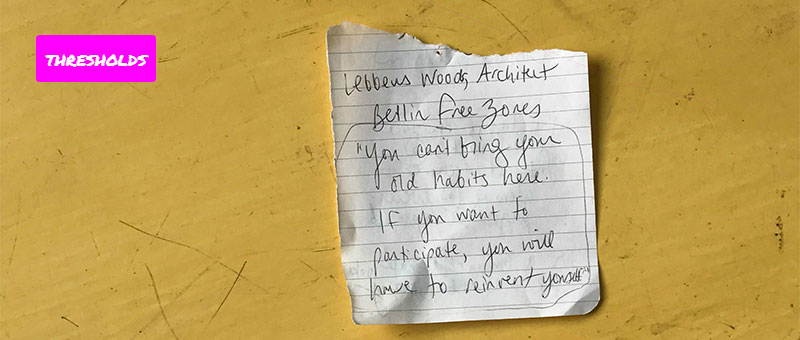 THRESHOLDS
Lebbeus Woods, Architect
Berlin Free Zones
"You can't bring your
old habits here.
If you want to
participate, you will
have to reinvent yourself"